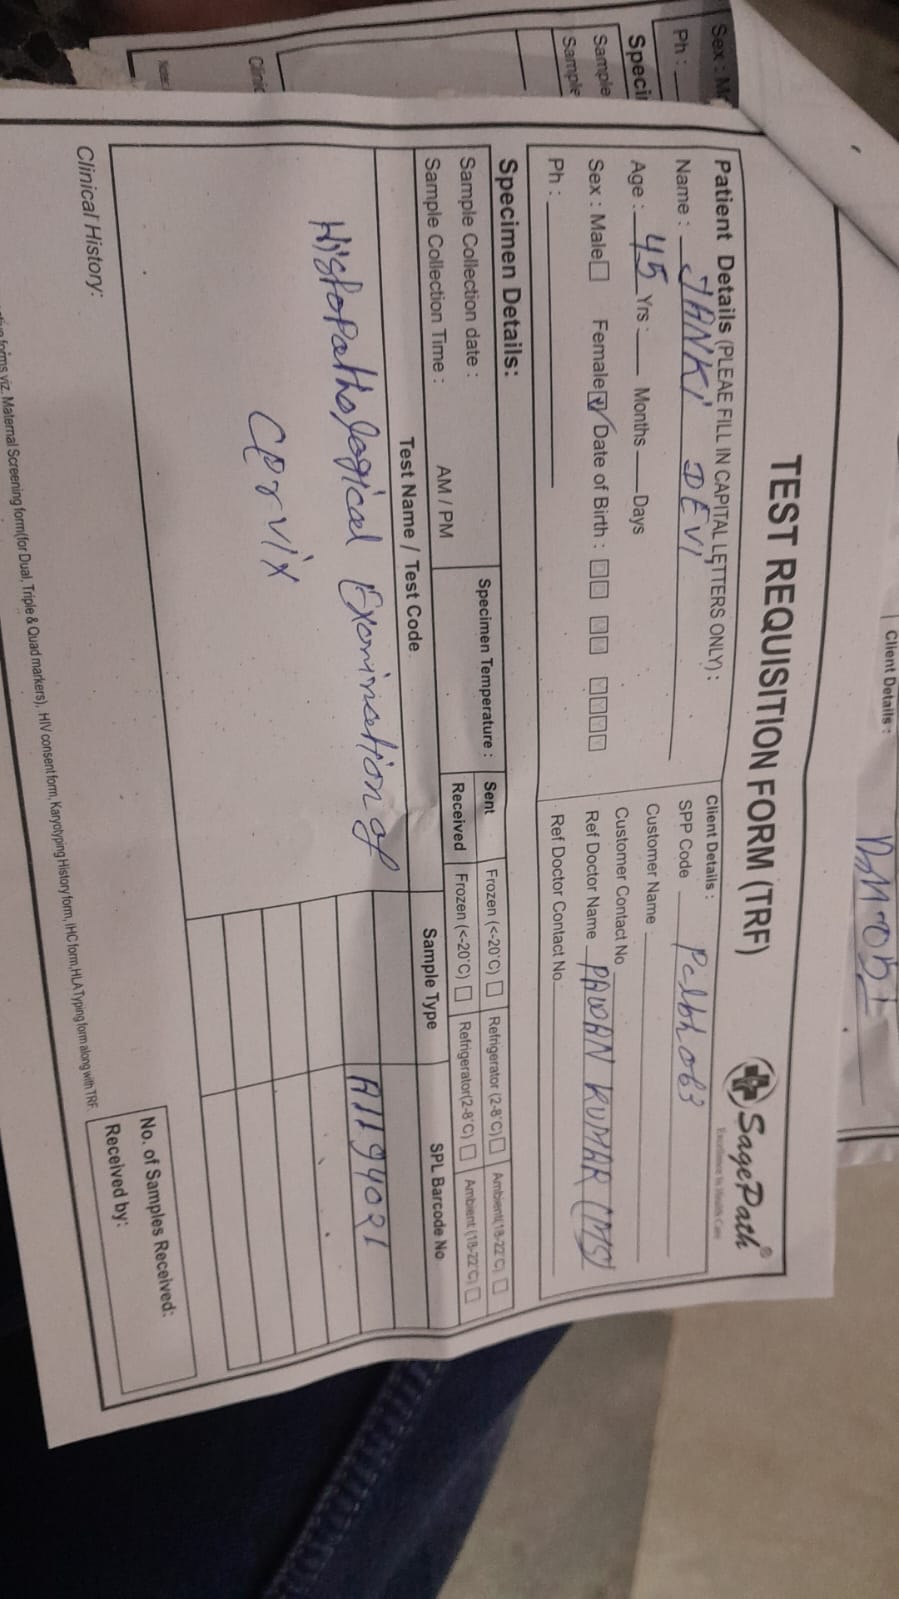 Client Details :
TEST REQUISITION FORM (TRF)
SagePath®
Excellence In Health Care
Patient Details (PLEAE FILL IN CAPITAL LETTERS ONLY) :
Name : JANKI DEVI
Age : 45 Yrs : Months Days
Sex : Male Female Date of Birth :
Ph :
Client Details :
SPP Code
Customer Name
Customer Contact No
Ref Doctor Name PAWAN KUMAR (MS)
Ref Doctor Contact No.
Specimen Details:
Sample Collection date :
Sample Collection Time : AM / PM
Specimen Temperature :
Sent Frozen (<-20°C) Refrigerator (2-8°C) Ambient(18-22°C)
Received Frozen (<-20°C) Refrigerator(2-8°C) Ambient (18-22°C)
Test Name / Test Code Sample Type SPL Barcode No
Histopathological Examination of
Cervix
A1194021
Clinical History:
No. of Samples Received:
Received by:
forms viz. Maternal Screening form(for Dual, Triple & Quad markers), HIV consent form, Karyotyping History form, IHC form,HLA Typing form along with TRF.
Sex : M
Ph :
Speci
Sample
Sample
Clinic